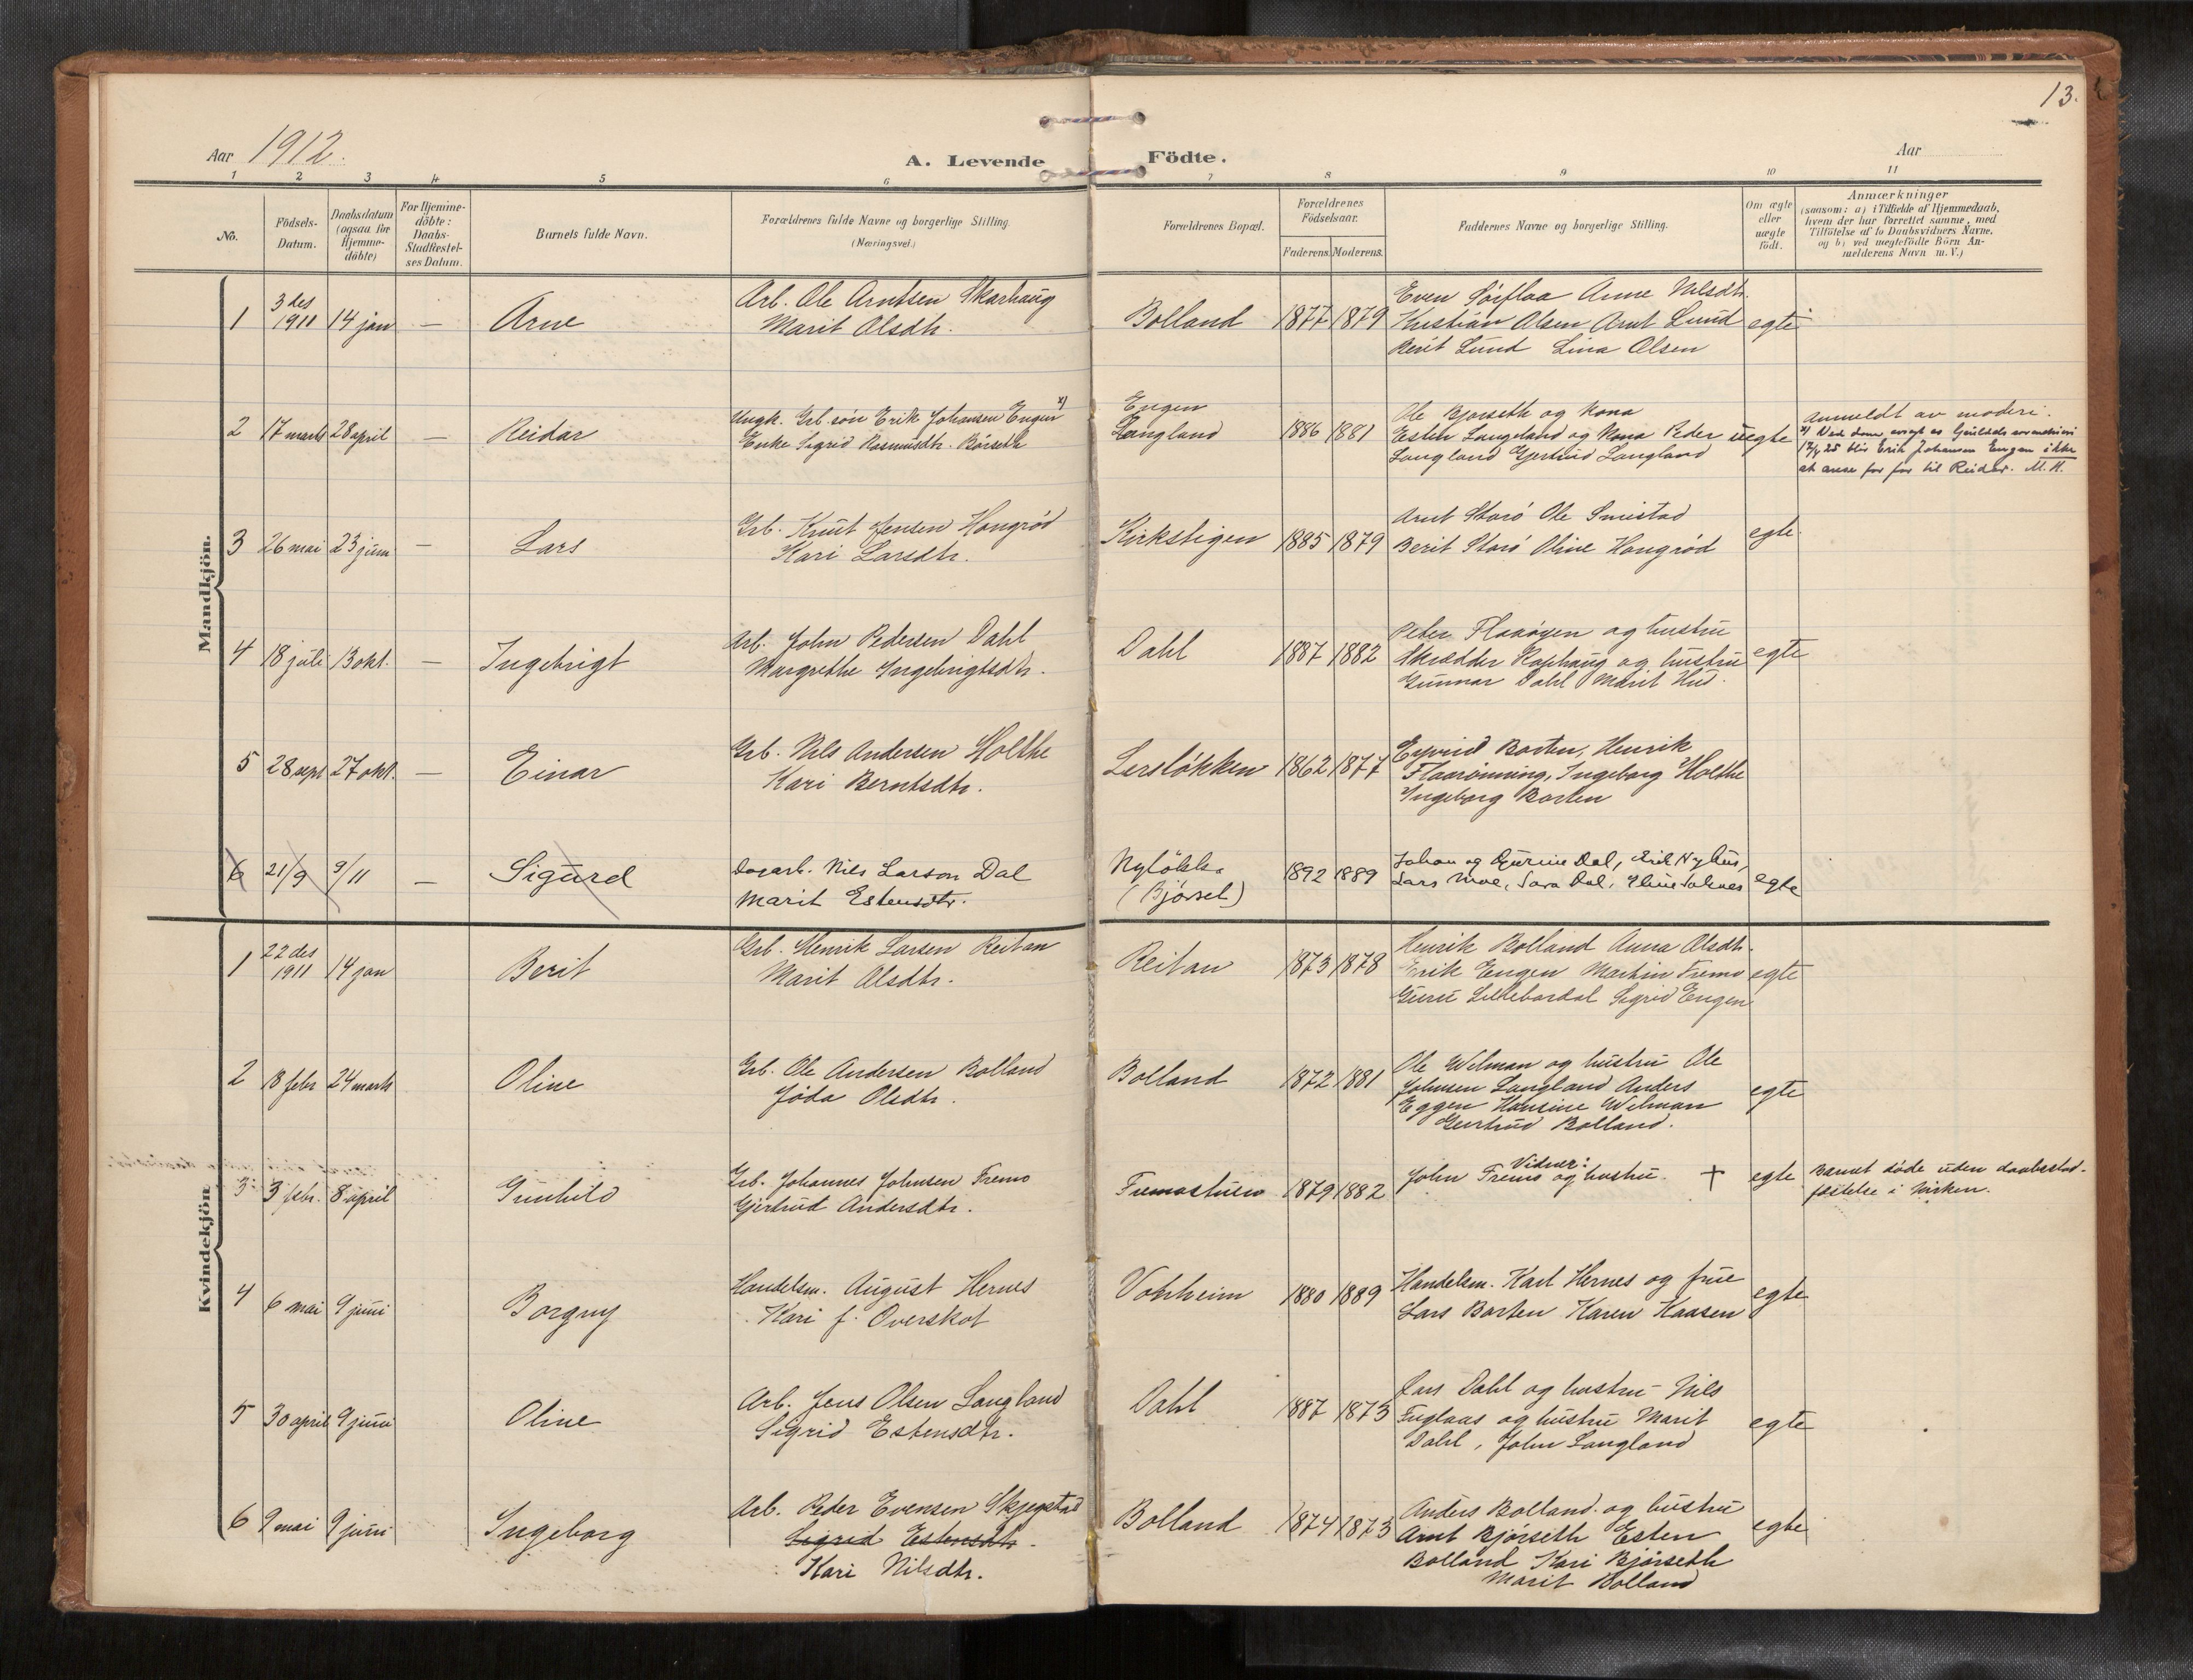 13.
Aar 1912.
A. Levende Födte.
Aar
1 2 3 4 5 6 7 8 9 10 11
No.
Födsels-Datum.
Daabsdatum (ogsaa for Hjemme-döbte)
For Hjemme-döbte: Daabs-Stadfæstel-ses Datum.
Barnets fulde Navn.
Forældrenes fulde Navne og borgerlige Stilling.
(Næringsvei.)
Forældrenes Bopæl.
Forældrenes Födselsaar.
Faderens. Moderens.
Faddernes Navne og borgerlige Stilling.
Om ægte eller uægte födt.
Anmærkninger
(saasom: a) i Tilfælde af Hjemmedaab,
hvem der har forrettet samme, med
Tilföielse af to Daabsvidners Navne,
og b) ved uægtefödte Börn An-
melderens Navn m. V.)
Mandkjön.
1 3 des 1911 14 jan — Arne
Arb. Ole Arntsen Skarhaug
Marit Olsdtr.
Bolland 1877 1879
Even Sörflaa Anne Nilsdtr.
Kristian Olsen Arnt Lund
Berit Lund Lina Olsen
egte
2 17 marts 28 april — Reidar
Ungk. Grb. sön Erik Johansen Engen x)
Enke Sigrid Rasmusdtr. Börseth
Engen
Langland
1886 1881
Ole Bjørseth og kona
Esten Langeland og kona Peder
Langland Gjertrud Langland
uegte
Anmeldt av moderi.
17/4 25 blir Erik Johansen Engen ikke
at anse for far til Reidar. M. H.
3 26 mai 23 juni — Lars
Grb. Knut Jensen Haugrød
Kari Larsdtr.
Kirkstigen 1885 1879
Arnt Storö Ole Smistad
Berit Storö Oline Haugrød
egte.
4 18 juli 13 okt. — Ingebrigt
Arb. John Pedersen Dahl
Margrethe Ingebrigtsdtr.
Dahl 1887 1882
Peter Flaaöyen og hustru
Skrædder og hustru
Gunnar Dahl Marit
egte
5 28 sept 27 okt. — Einar
Grb. Nils Andersen Holthe
Kari Berntsdtr.
Lerslökken 1862 1877
Eyvind Borten, Henrik
Flaarönning, Ingeborg Holthe
Ingeborg Borten
6 21/9 3/11 — Sigurd
Dagarb. Nils Larson Dal
Marit Estensdtr.
Nylökk.
(Bjørset)
1892 1889
Johan og Gurine Dal, Erik Nyhus,
Lars Moe, Sara Dal,
egte
Kvindekjön
1 22 des 1911 14 jan Berit
Grb. Henrik Larsen Reitan
Marit Olsdtr.
Reitan 1873 1878
Henrik Bolland Anna Olsdtr.
Erik Engen Martin Fremo
Guru Lillebardal Sigrid Engen
egte
2 18 febr 24 marts Oline
Grb. Ole Andersen Bolland
Jöda Olsdtr.
Bolland 1872 1881
Ole Wilman og hustru Ole
Johnsen Langland Anders
Eggen Hansine Wilman
Gjertrud Bolland.
egte
3 3 febr. 8 april Gunhild
Grb. Johannes Johnsen Fremo
Gjertrud Andersdtr.
Fremostuen 1879 1882
Vidner:
John Fremo og hustru. †
egte
Barnet døde uden daabsstad-
fæstelse i kirken.
4 6 mai 9 juni Borgny
Handelsm. August Hernes
Kari f. Overskot
Vohheim 1880 1889
Handelsm. Karl Hernes og frue
Lars Borten Karen Kaasen
egte
5 30 april 9 juni Oline
Arb. Jens Olsen Langland
Sigrid Estensdtr.
Dahl 1887 1873
Lars Dahl og hustru Nils
Fuglaas og hustru Marit
Dahl, John Langland
egte
6 9 mai 9 juni Ingeborg
Arb. Peder Evensen Skjegstad
Sigrid Estensdtr.
Kari Nilsdtr.
Bolland 1874 1873
Anders Bolland og hustru
Arnt Bjørseth Esten
Bolland Kari Bjørseth
Marit Bolland
egte